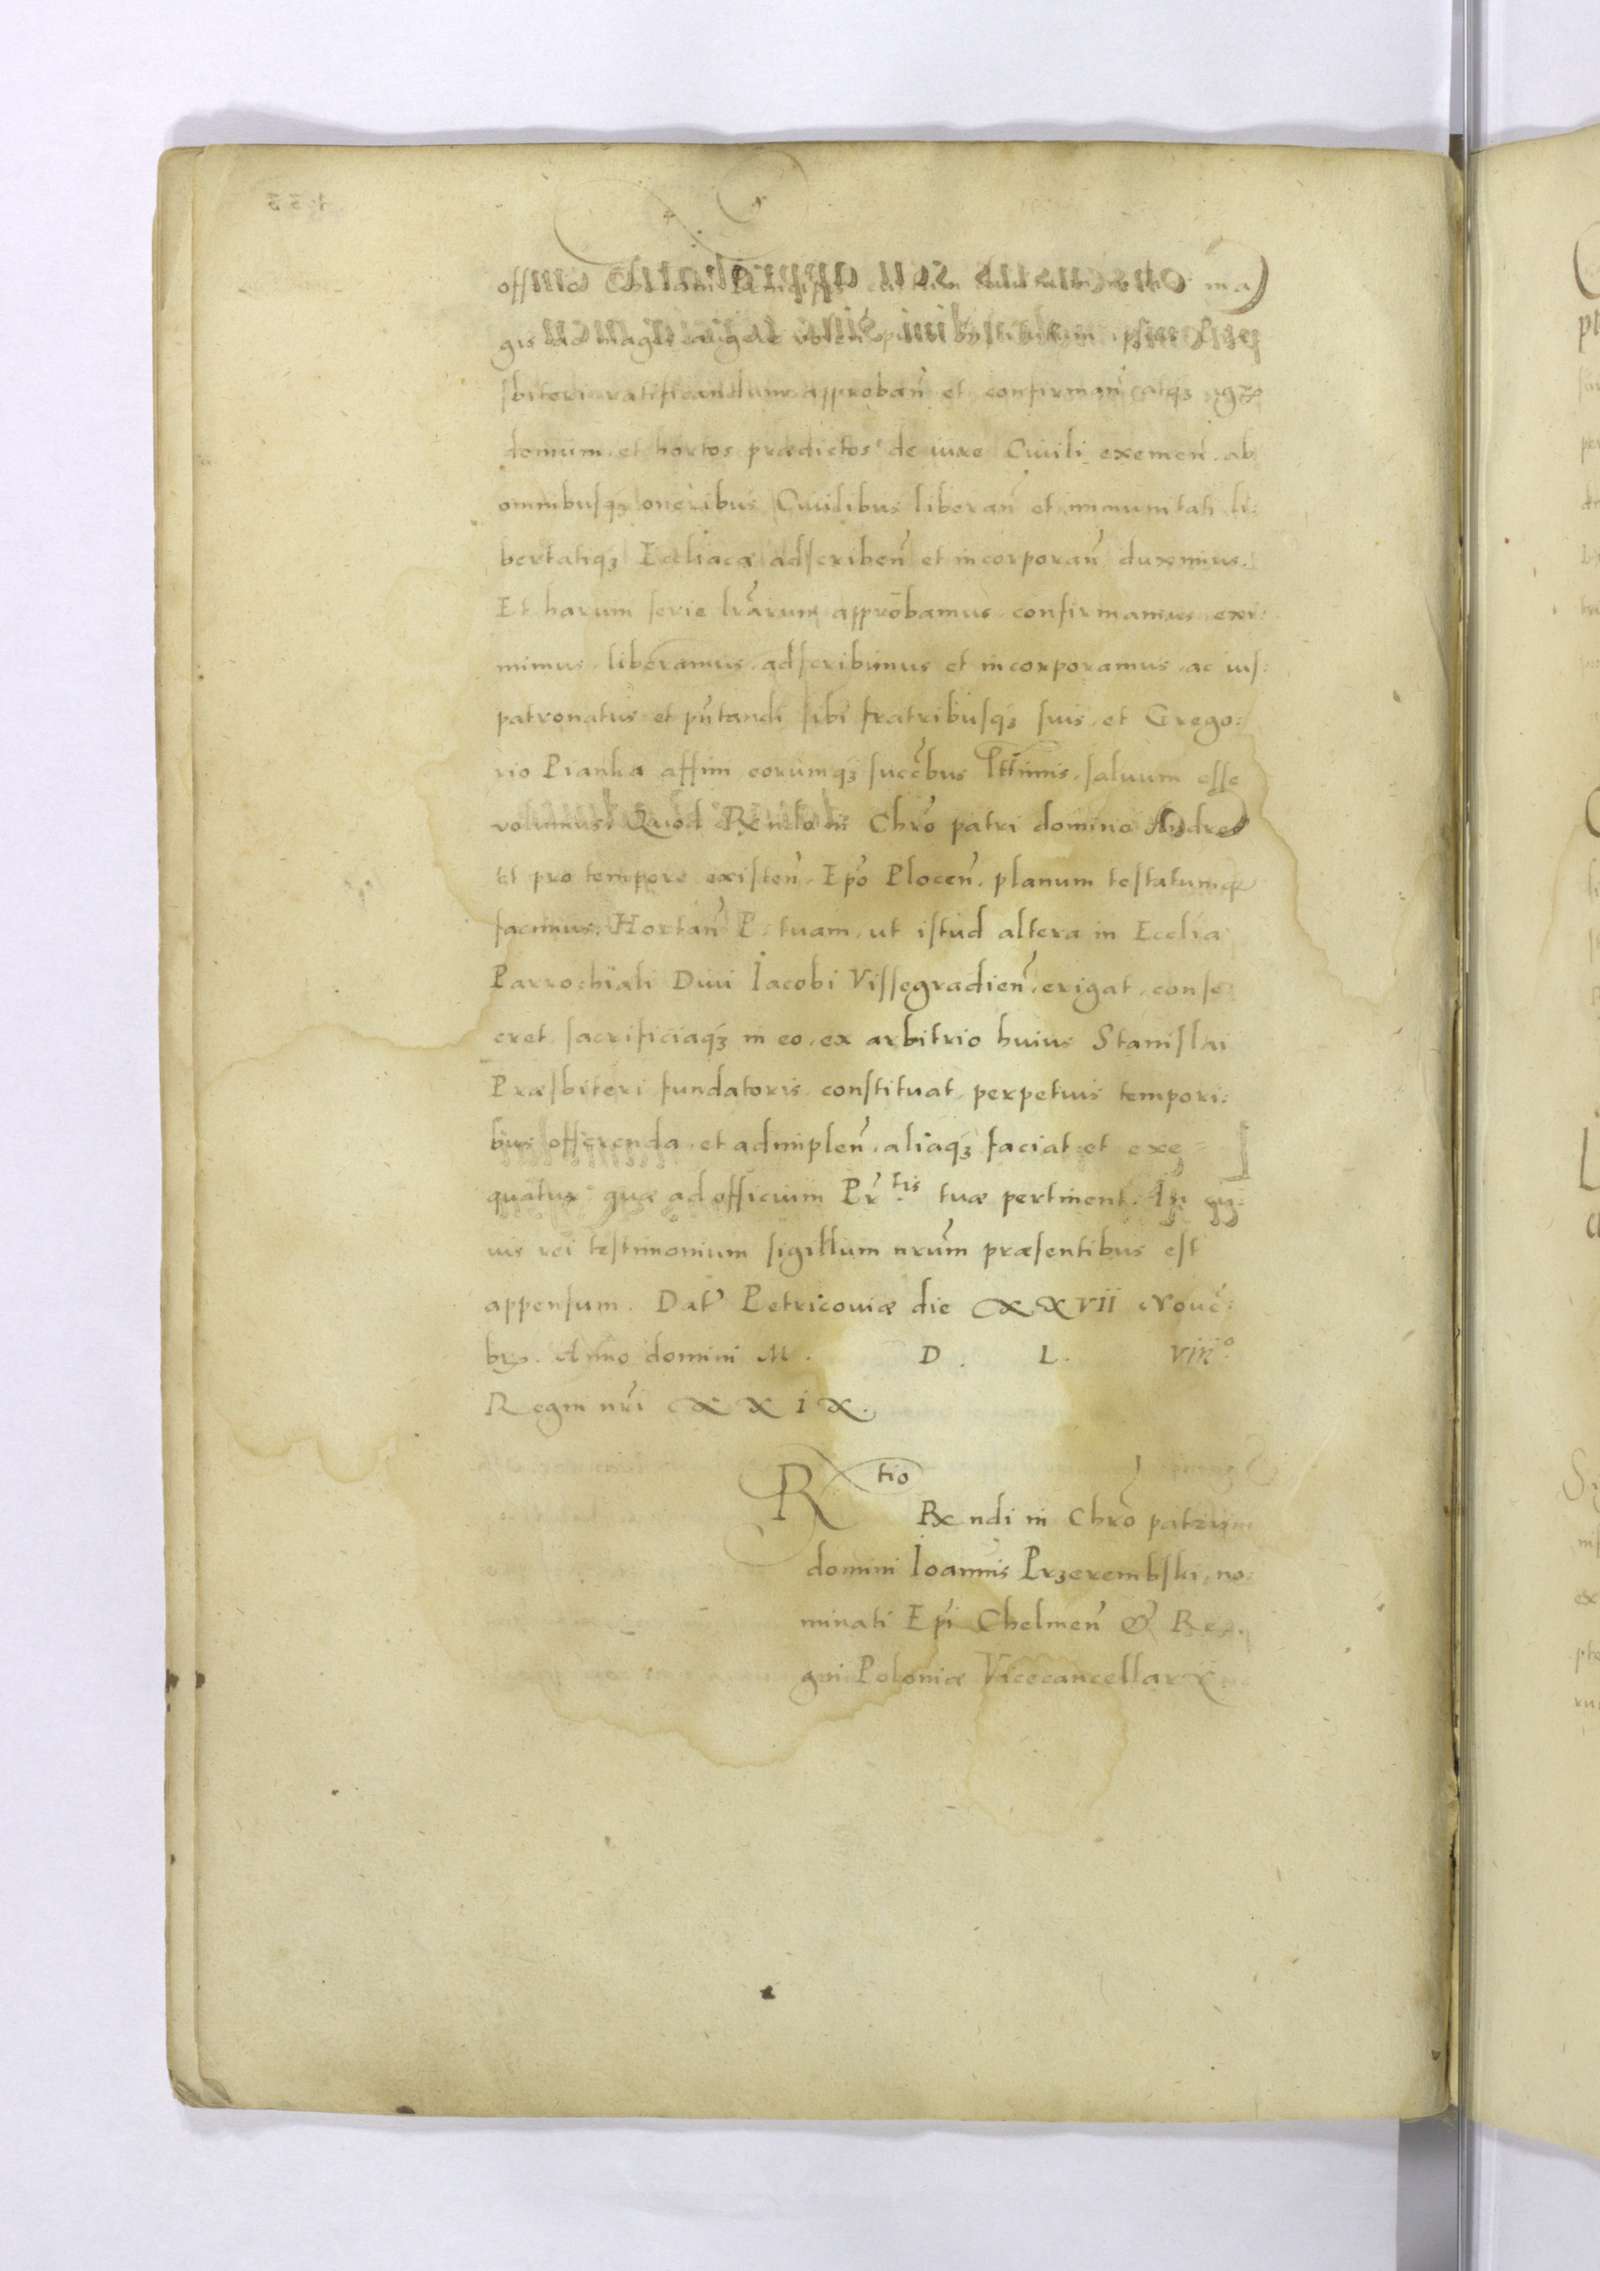 offitio ma
gis ac magis augere
sbiteri ratificandum approban̄ et confirman̄ atqꝫ
domum et hortos prædictos de iure Ciuili eximen̄ ab
omnibusqꝫ oneribus Ciuilibus liberan̄ et immunitati li:
bertatiqꝫ Eccliacæ adscriben̄ et incorporan̄ duximus.
Et harum serie lr̄arum approbamus confirmamus exi:
mimus liberamus adscribimus et incorporamus ac ius:
patronatus et pn̄tandi sibi fratribusqꝫ suis et Grego:
rio Pianka affini eorumqꝫ succ̄bus lttimis saluum esse
volumus. Quod Rx̄ndo in Chrō patri domino Andreæ
et pro tempore existen̄ Epō Plocen̄. planum testatumqꝫ
facimus. Hortan̄ P. tuam, ut istud altera in Ecclia
Parrochiali Diui Iacobi Vissegradien̄. erigat, conse:
cret, sacrificiaqꝫ in eo, ex arbitrio huius Stanislai
Præsbiteri fundatoris constituat perpetuis tempori:
bus offerenda, et adimplen̄ aliaqꝫ faciat et exe
quatur quæ ad officium Pr̄.tis tuæ pertinent. In cu:
ius rei testimonium sigillum nr̄um præsentibus est
appensum. Dat̄ Petricouiæ die XXVII Nouē:
bris. Anno domini M. D. L. VIII°
Regni nr̄i XXIX.
Rtio
Rx̄ndi in Chrō patris
domini Ioannis Przerembski, no:
minati Epi Chelmen̄ & Re:
gni Poloniæ Vicecancellarii